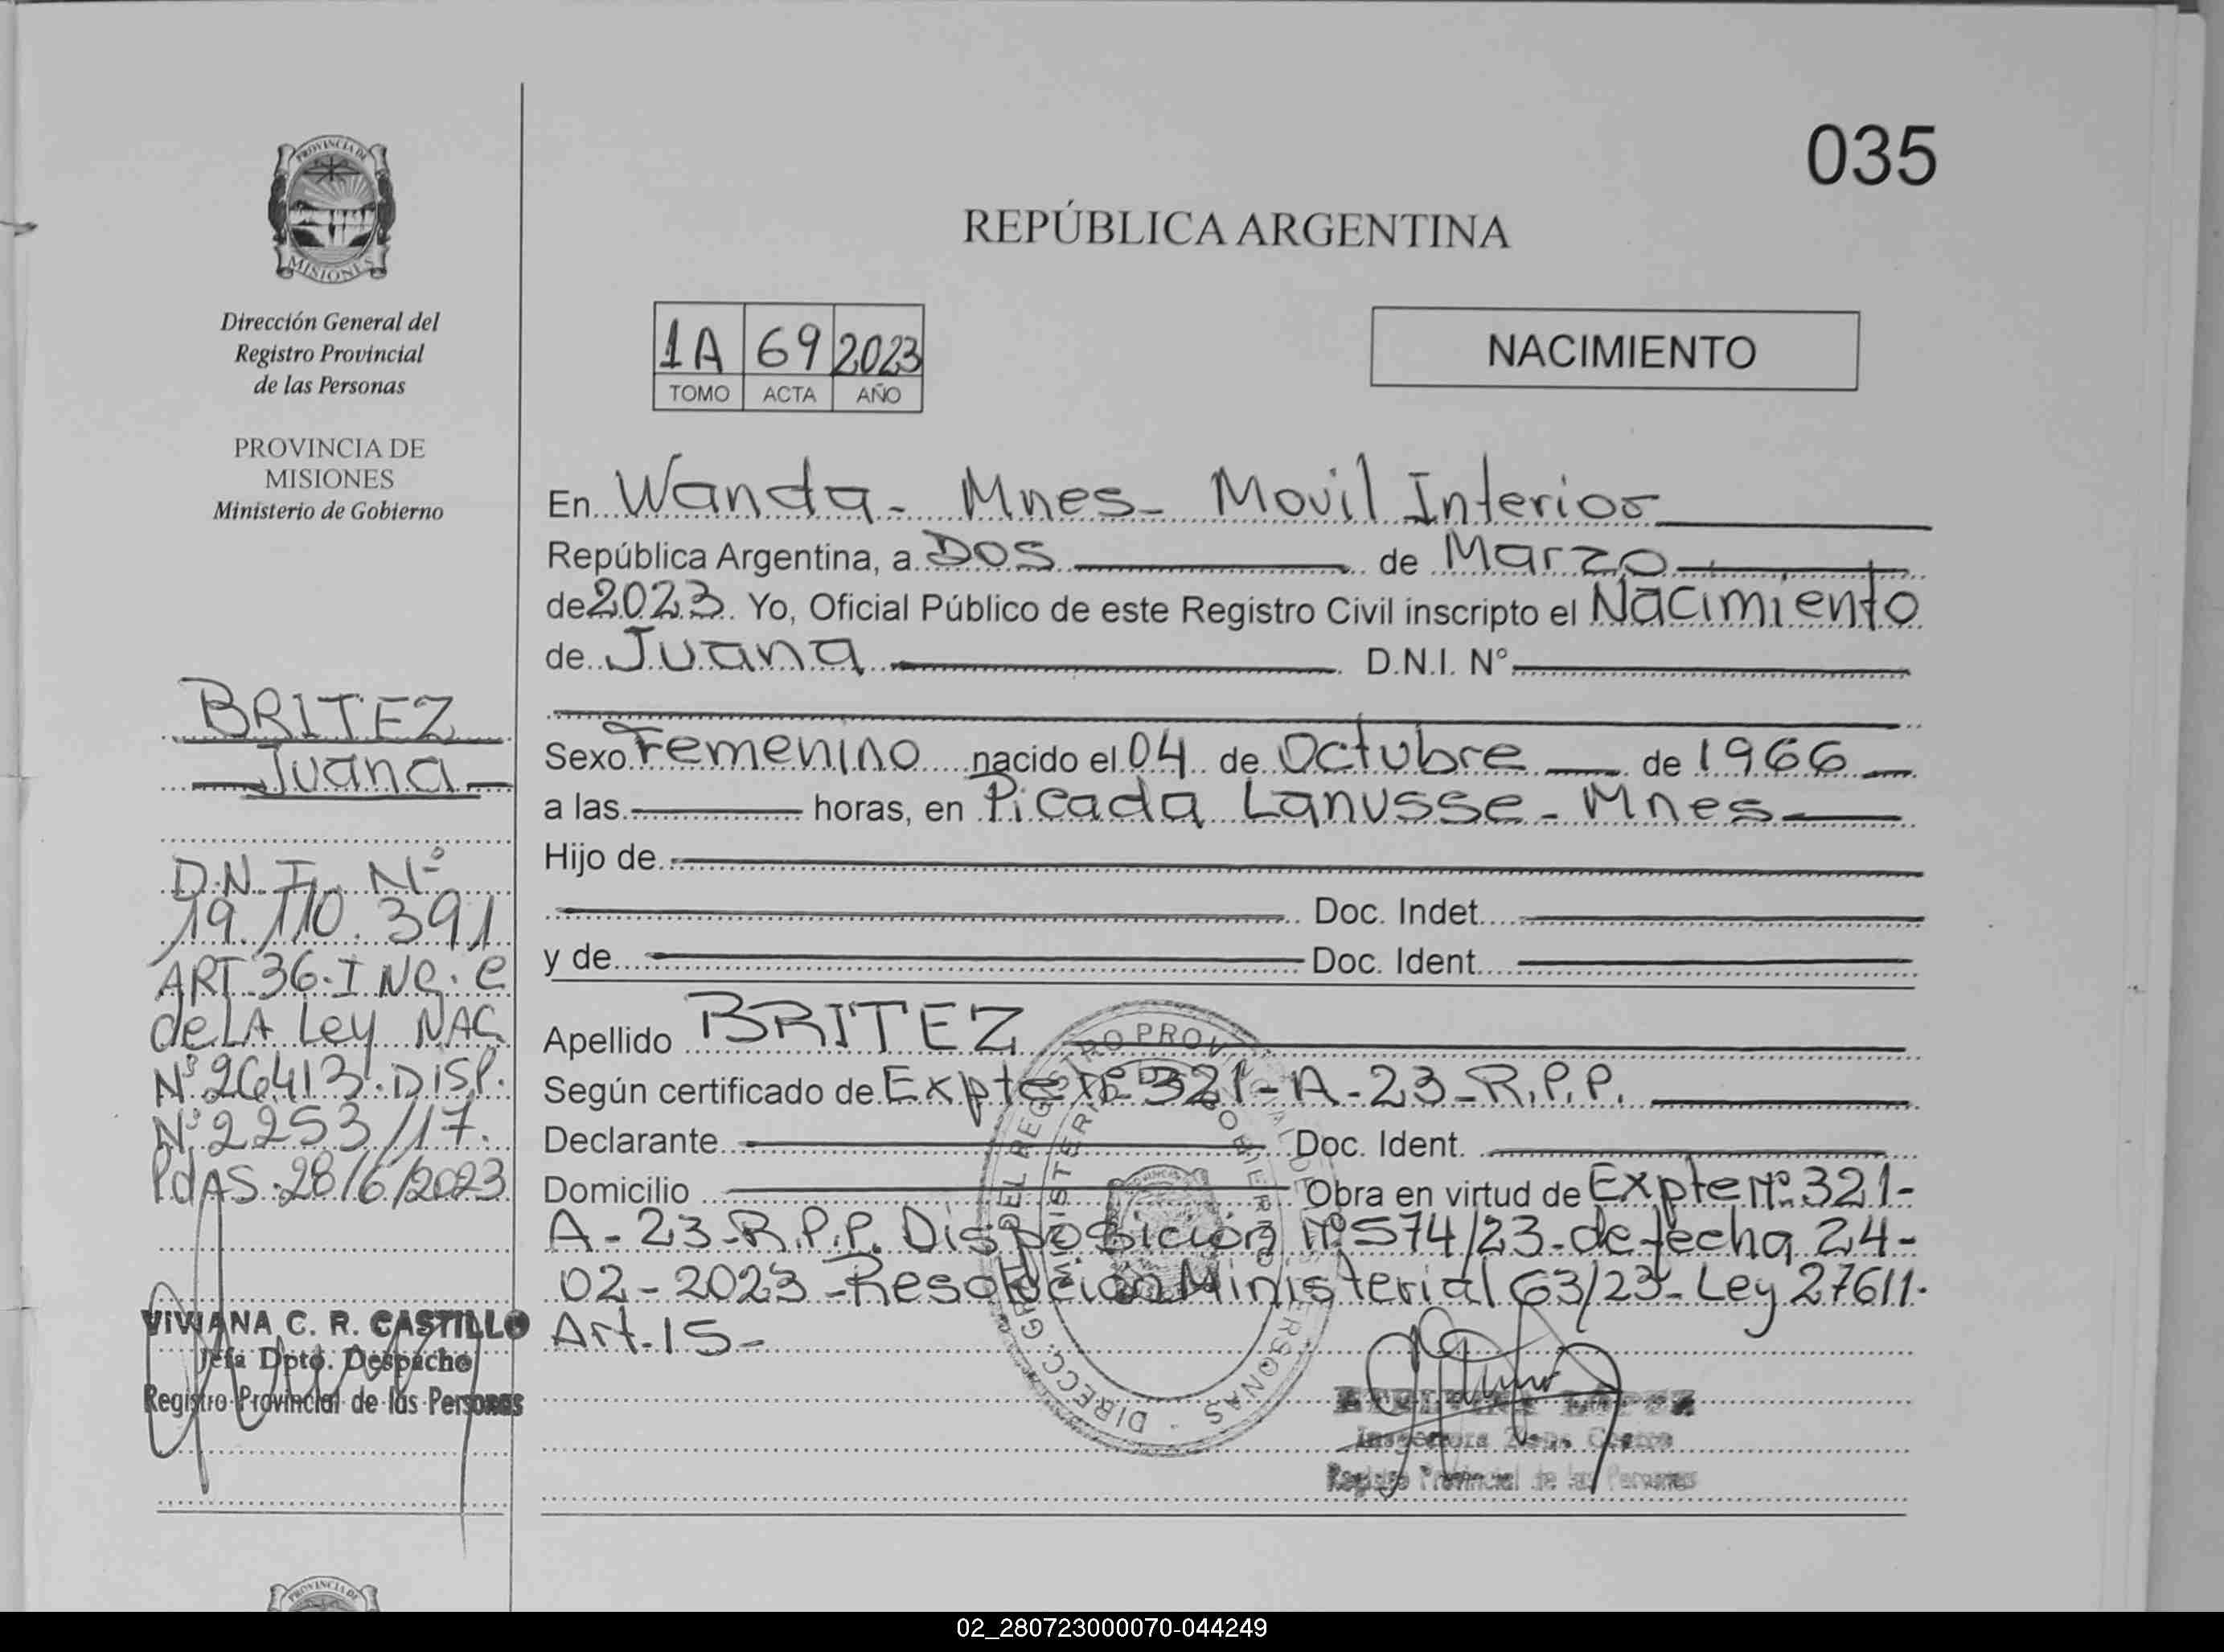 035
REPÚBLICA ARGENTINA
PROVINCIA DE
MISIONES
Dirección General del
Registro Provincial
de las Personas
PROVINCIA DE
MISIONES
Ministerio de Gobierno
1A 69 2023
TOMO ACTA AÑO
NACIMIENTO
BRITEZ
Juana
D.N.I. Nº
19.110.391
ART.36.INC.C
deLA Ley NAC
Nº26413.DISP.
Nº2253/17.
PdAS.28/6/2023
VIVIANA C. R. CASTILLO
Jefa Dpto. Despacho
Registro Provincial de las Personas
En Wanda - Mnes - Movil Interior
República Argentina, a Dos de Marzo
de 2023. Yo, Oficial Público de este Registro Civil inscripto el Nacimiento
de Juana D.N.I. N°
Sexo Femenino nacido el 04 de Octubre de 1966
a las horas, en Picada Lanusse - Mnes
Hijo de
Doc. Indet.
y de Doc. Ident.
Apellido BRITEZ
Según certificado de Expte nº 321-A-23-R.P.P.
Declarante Doc. Ident.
Domicilio Obra en virtud de Expte nº 321-
A-23-R.P.P. Disposición nº 574/23-de fecha 24-
02-2023-Resolución Ministerial 63/23-Ley 27611.
Art.15-
Registro Provincial de las Personas
PROVINCIA
02_280723000070-044249